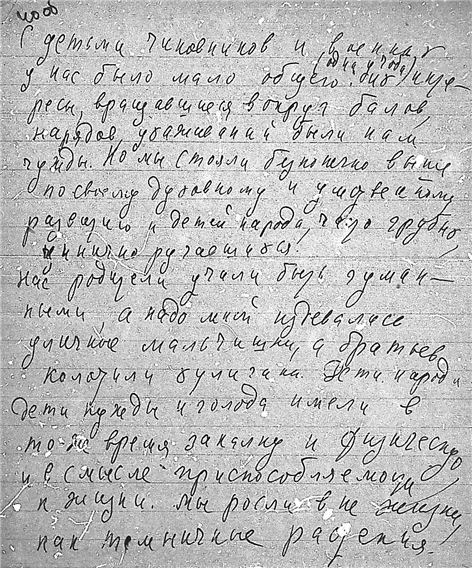 С детьми чиновников и военных
у нас было мало общего. Их инте-
ресы, вращавшиеся вокруг балов,
нарядов, ухаживаний были нам
чужды. Но мы стояли бесконечно выше
по своему духовному и умственному
развитию и детей народа, часто грубо,
цинично ругавшихся.
Нас родители учили быть гуман-
ными, а надо мной издевались
уличные мальчишки, а братьев
колотили хулиганы. Дети народа
дети нужды и голода имели в
то же время закалку и физическую,
и в смысле приспособляемости
к жизни. Мы росли вне жизни,
как тепличные растения.